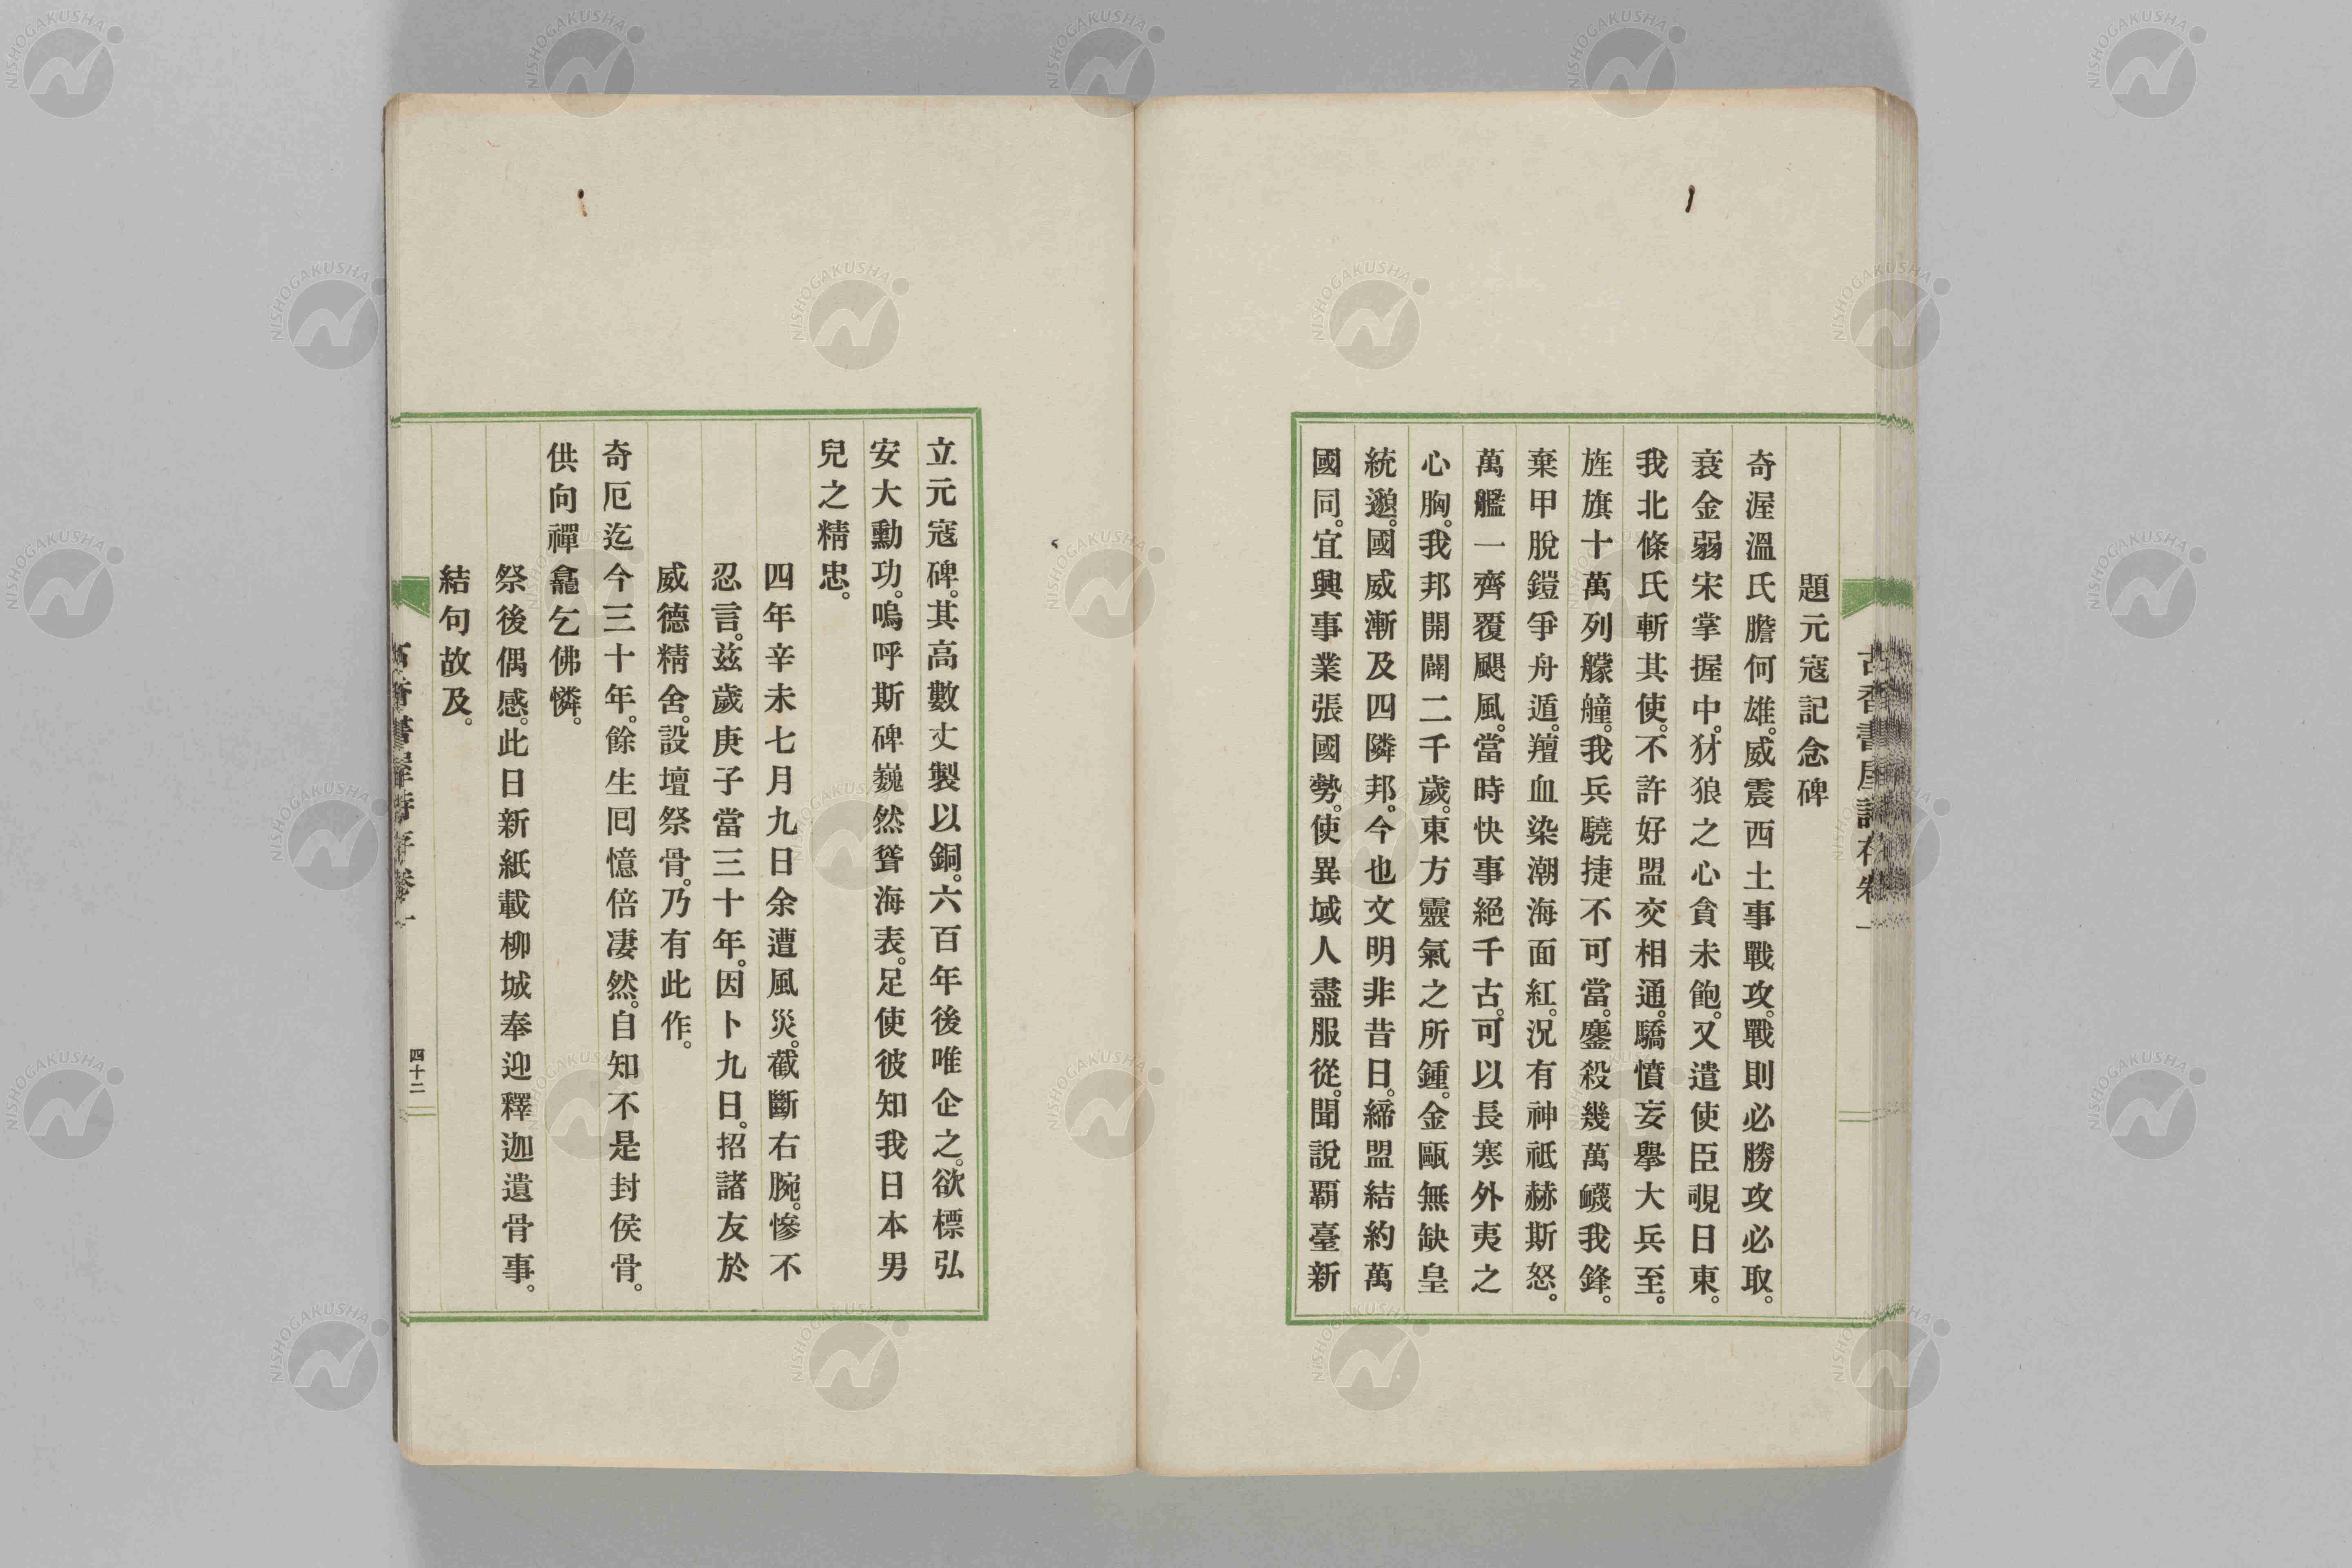 題元寇記念碑
奇渥溫氏膽何雄。威震西土事戰攻。戰則必勝攻必取。
衰金弱宋掌握中。犲狼之心貪未飽。又遣使臣覗日東。
我北條氏斬其使。不許好盟交相通。驕憤妄擧大兵至。
旌旗十萬列艨艟。我兵驍捷不可當。鏖殺幾萬衊我鋒。
棄甲脫鎧爭舟遁。羶血染潮海面紅。況有神祇赫斯怒。
萬艦一齊覆颶風。當時快事絕千古。可以長寒外夷之
心胸。我邦開闢二千歲。東方靈氣之所鍾。金甌無缺皇
統邈。國威漸及四隣邦。今也文明非昔日。締盟結約萬
國同。宜興事業張國勢。使異域人盡服從。聞說覇臺新
立元寇碑。其高數丈製以銅。六百年後唯企之。欲標弘
安大勳功。嗚呼斯碑巍然聳海表。足使彼知我日本男
兒之精忠。
四年辛未七月九日余遭風災。截斷右腕。慘不
忍言。玆歲庚子當三十年。因卜九日。招諸友於
威德精舍。設壇祭骨。乃有此作。
奇厄迄今三十年。餘生囘憶倍凄然。自知不是封侯骨。
供向禪龕乞佛憐。
祭後偶感。此日新紙載柳城奉迎釋迦遺骨事。
結句故及。
古香書屋詩存卷一
四十二
NISHOGAKUSHA